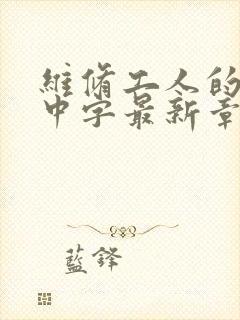 維脩工人的
中字最新章
藍鋒